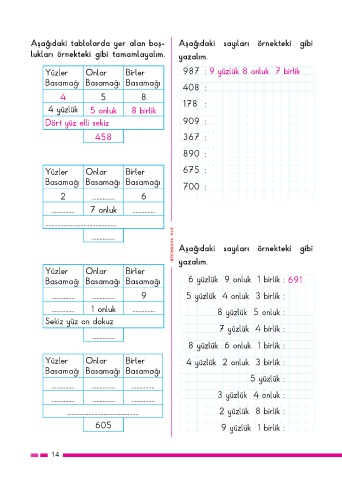 Aşağıdaki tablolarda yer alan boş-
lukları örnekteki gibi tamamlayalım.
Yüzler Onlar Birler
Basamağı Basamağı Basamağı
4 5 8
4 yüzlük 5 onluk 8 birlik
Dört yüz elli sekiz
458
Yüzler Onlar Birler
Basamağı Basamağı Basamağı
2 .............. 6
.............. 7 onluk ..............
..........................................
..............
Yüzler Onlar Birler
Basamağı Basamağı Basamağı
.............. .............. 9
.............. 1 onluk ..............
Sekiz yüz on dokuz
..............
Yüzler Onlar Birler
Basamağı Basamağı Basamağı
.............. .............. ..............
.............. .............. ..............
..........................................
605
Aşağıdaki sayıları örnekteki gibi
yazalım.
987 : 9 yüzlük 8 onluk 7 birlik
408 :
178 :
909 :
367 :
890 :
675 :
700 :
Aşağıdaki sayıları örnekteki gibi
yazalım.
6 yüzlük 9 onluk 1 birlik : 691
5 yüzlük 4 onluk 3 birlik :
8 yüzlük 5 onluk :
7 yüzlük 4 birlik :
8 yüzlük 6 onluk 1 birlik :
4 yüzlük 2 onluk 3 birlik :
5 yüzlük :
3 yüzlük 4 onluk :
2 yüzlük 8 birlik :
9 yüzlük 1 birlik :
14